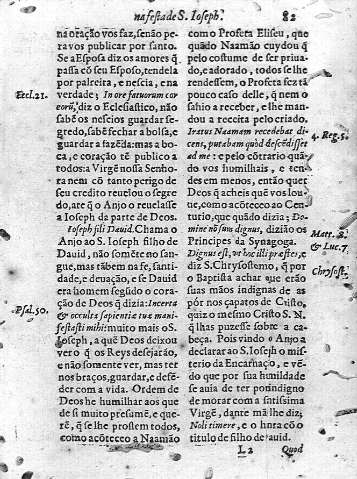 na festa de S. Ioseph. 82
na oração vos faz, senão pe-
ra vos publicar por santo.
Se a Esposa diz os amores q̃
passa cõ seu Esposo, tendela
por palreira, e nescia, e na
verdade; In ore fatuorum cor
eorũ, diz o Eclesiastico, não
sabẽ os nescios guardar se-
gredo, sabẽ fechar a bolsa, e
guardar a fazẽda: mas a bo-
ca, e coração tẽ publico a
todos: a Virgẽ nossa Senho-
ra nem cõ tanto perigo de
seu credito reuelou o segre-
do, are q̃ o Anjo o reuelasse
a Ioseph da parte de Deos.
Ioseph fili Dauid. Chama o
Anjo ao S. Ioseph filho de
Dauid, não somẽte no san-
gue, mas tãbem na fe, santi-
dade, e deuação, e se Dauid
era homem segũdo o cora-
ção de Deos q̃ dizia: Incerta
& occulta sapientiæ tuæ mani-
festasti mihi: muito mais o S.
Ioseph, a quẽ Deos deixou
ver o q̃ os Reys desejarão,
e não somente ver, mas ter
nos braços, guardar, e defẽ-
der com a vida. Ordem de
Deos he humilhar aos que
de si muito presumẽ, e que-
rẽ, q̃ se lhe prostem todos,
como acõteceo a Naamão
Eccl. 21.
Psal. 50.
como o Profeta Eliseu, que
quãdo Naamão cuydou q̃
pelo costume de ser priua-
do, e adorado, todos se lhe
rendessem, o Profeta fez tã
pouco casо delle, q̃ nem o
sahio a receber, e lhe man-
dou a receita pelo criado.
Iratus Naamam recedebat di-
cens, putabam quòd descẽdisset
ad me: e pelo cõtrario quã-
do vos humilhais, e ten-
des em menos, então quer
Deos q̃ acheis quẽ vos lou-
ue, como acõteceo ao Cen-
turio, que quãdo dizia; Do-
mine nõ sum dignus, dizião os
Principes da Synagoga.
Dignus est, vt hoc illi præstes, e
diz S. Chrysostomo, q̃ por
o Baptista achar que erão
suas mãos indignas de as
pòr nos çapatos de Cristo,
quiz o mesmo Cristo S. N.
q̃ lhas puzesse sobre a ca-
beça. Pois vindo o Anjo a
declarar ao S. Ioseph o mis-
terio da Encarnação, e vẽ-
do que por sua humildade
se auia de ter por indigno
de morar com a satissima
Virgẽ, dante mã lhe diz;
Noli timere, e o hnra cõ o
titulo de filho de auid.
4. Reg. 5.
Matt. 8.
& Luc. 7.
Chrysost.
L 2 Quod